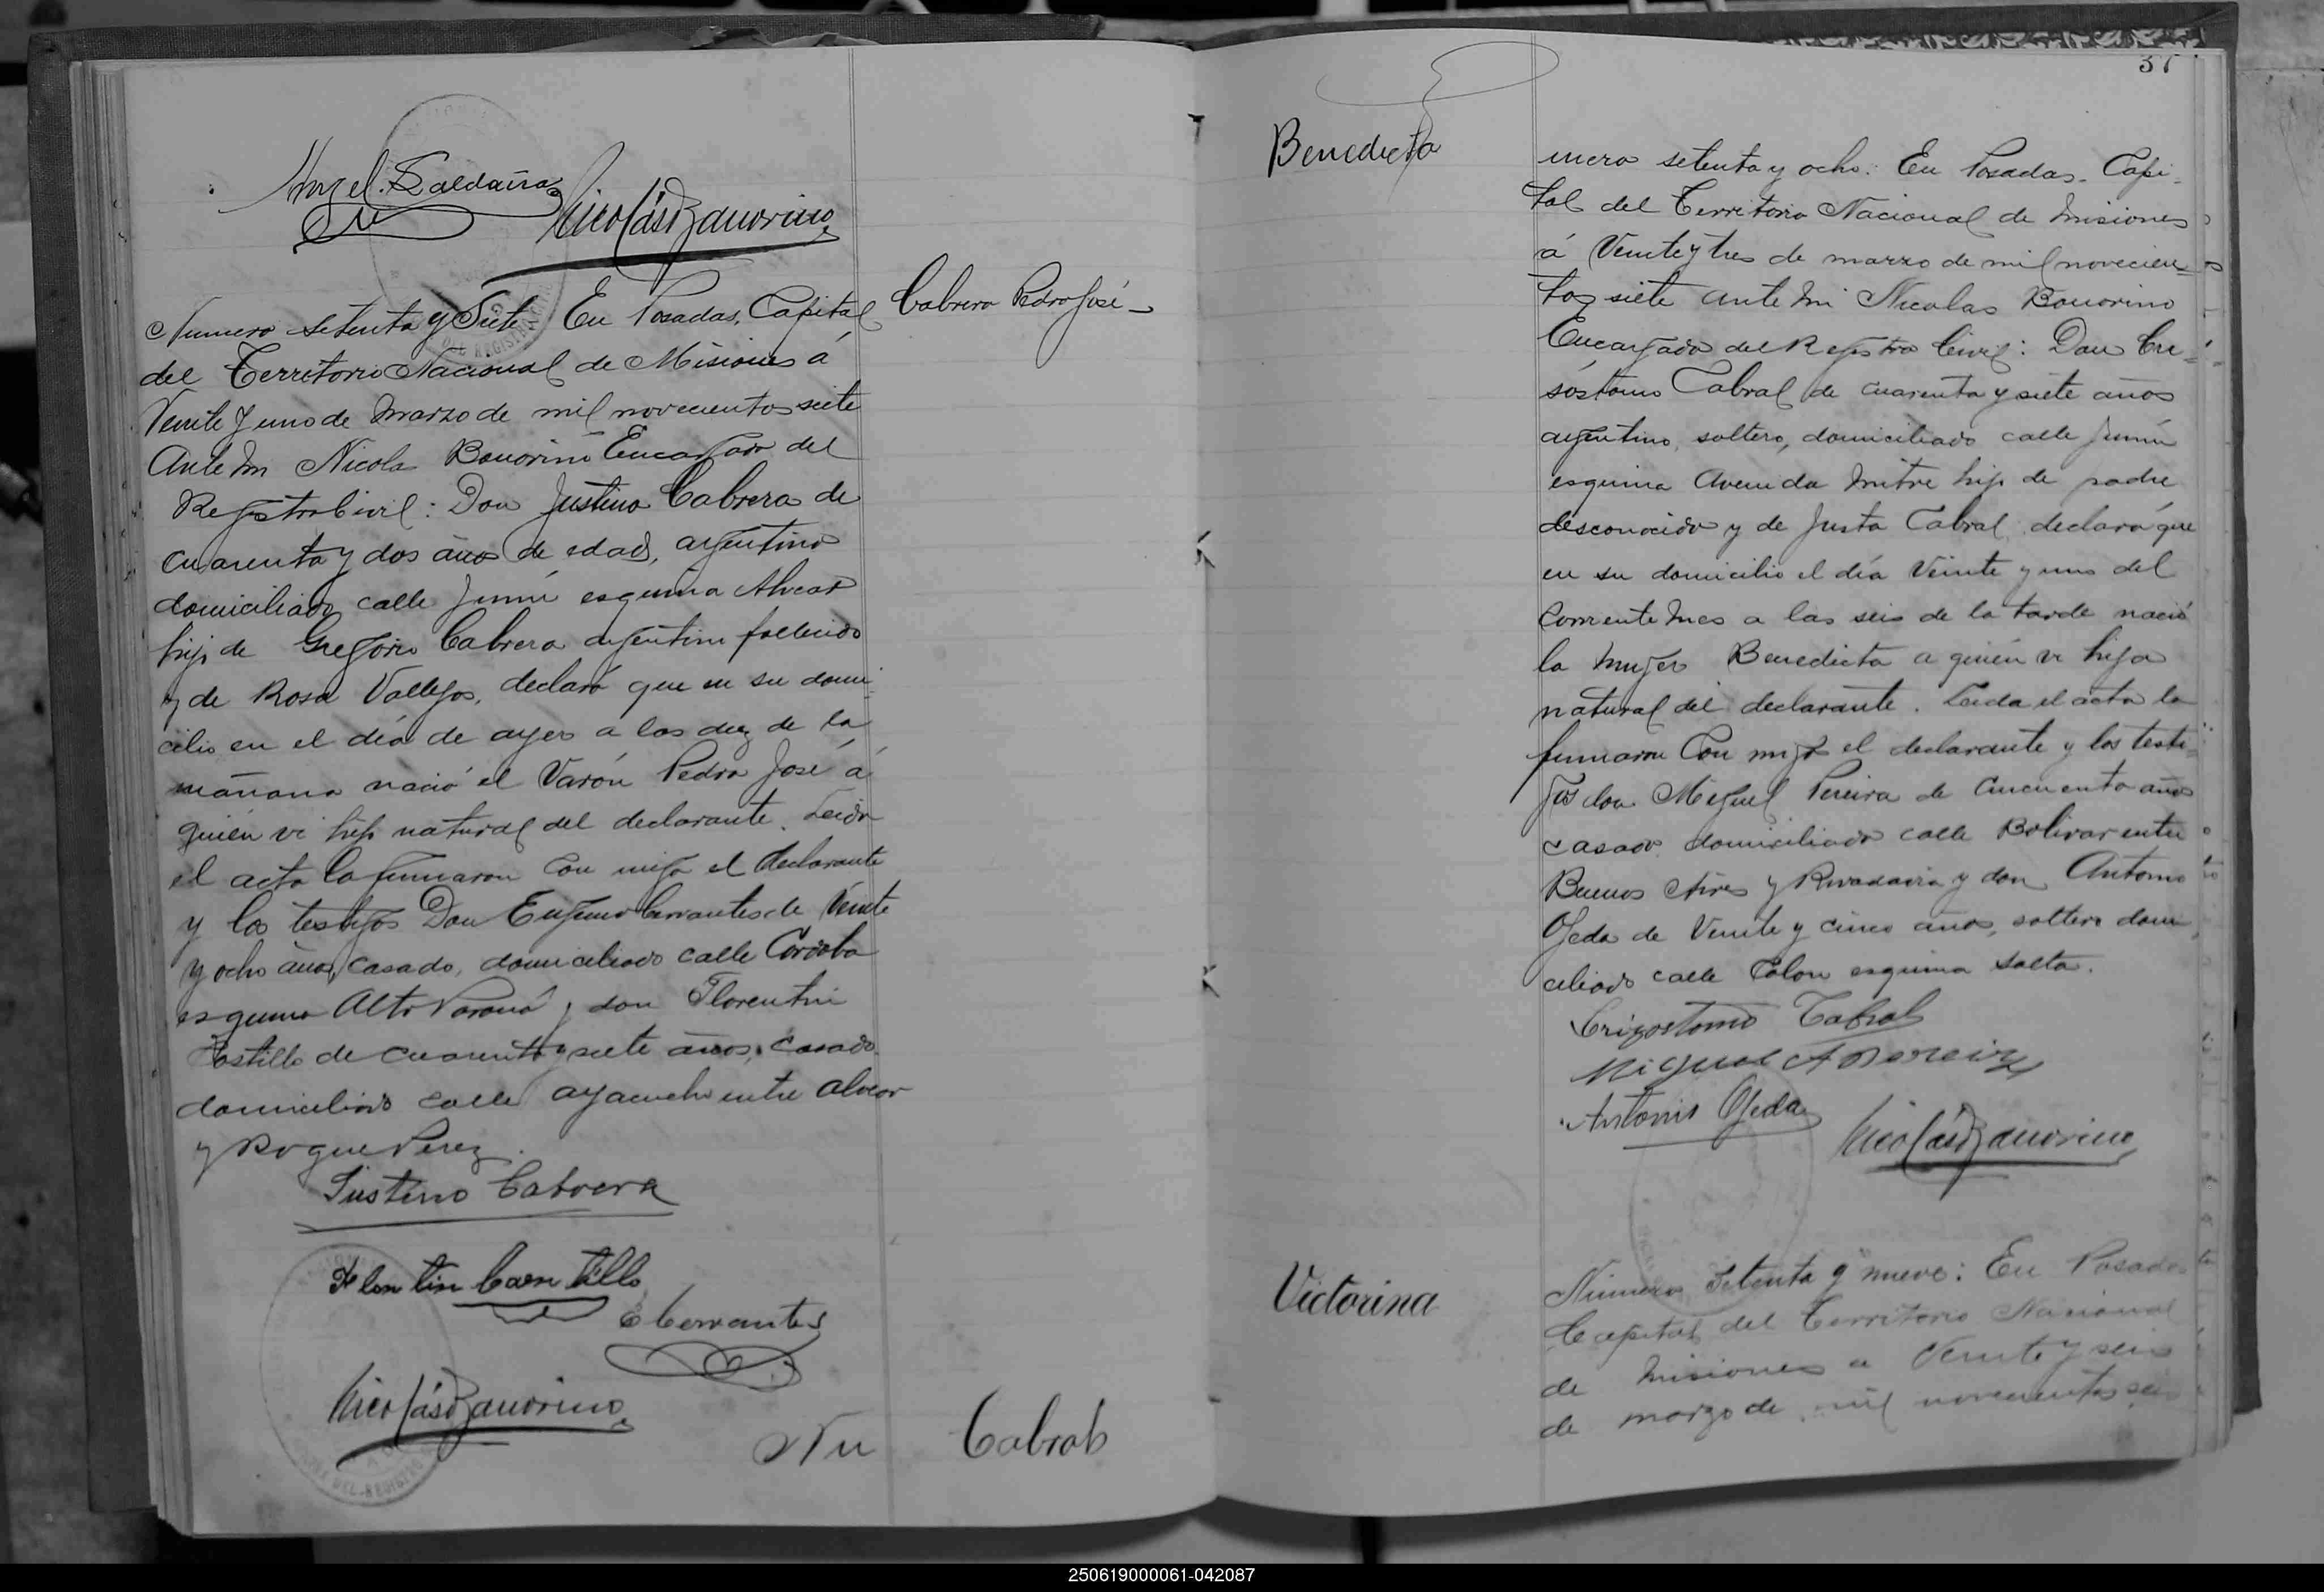 Angel Saldaña
Nicolás Bonorino
Numero setenta y Siete En Posadas, Capital
del Territorio Nacional de Misiones á
Veinte y uno de Marzo de mil novecientos siete
Ante Mi Nicolas Bonorino Encargado del
Registro Civil: Don Justino Cabrera de
cuarenta y dos años de edad, argentino
domiciliado calle Junin esquina Alvear
hijo de Gregorio Cabrera argentino fallecido
y de Rosa Vallejos, declaró que en su domi-
cilio en el día de ayer a las diez de la
mañana nació el Varón Pedro José á
quién vi hijo natural del declarante. Leida
el acta la firmaron con migo el declarante
y los testigos Don Eugenio Cervantes de Veinte
y ocho años, casado, domiciliado calle Cordoba
esquina Alto Paraná y don Florentin
Castillo de cuarenta y siete años, casado
domiciliado calle ayacucho entre alvear
y Roque Perez.
Justino Cabrera
Florentin Castillo
E Cervantes
Nicolás Bonorino
Cabrera Pedro José-
Nu
Cabral
37
Benedicta
mero setenta y ocho: En Posadas- Capi-
tal del Territorio Nacional de Misiones
á Veinte y tres de marzo de mil novecien-
tos siete ante mi Nicolas Bonorino
Encargado del Registro Civil: Don Cri-
sóstomo Cabral de cuarenta y siete años
argentino, soltero, domiciliado calle Junin
esquina Avenida Mitre hijo de padre
desconocido y de Justa Cabral, declaró que
en su domicilio el día Veinte y uno del
corriente mes a las seis de la tarde nació
la mujer Benedicta a quién vi hija
natural del declarante. Leida el acta la
firmaron con migo el declarante y los testi-
gos don Miguel Pereira de cincuenta años
casado domiciliado calle Bolivar entre
Buenos Aires y Rivadavia y don Antonio
Ojeda de Veinte y cinco años, soltero domi-
ciliado calle Colon esquina Salta.
Crizostomo Cabral
Miguel A Pereira
Antonio Ojeda
Nicolás Bonorino
Victorina
Número Setenta y nueve: En Posadas
Capital del Territorio Nacional
de Misiones a Veinte y seis
de marzo de mil novecientos
250619000061-042087